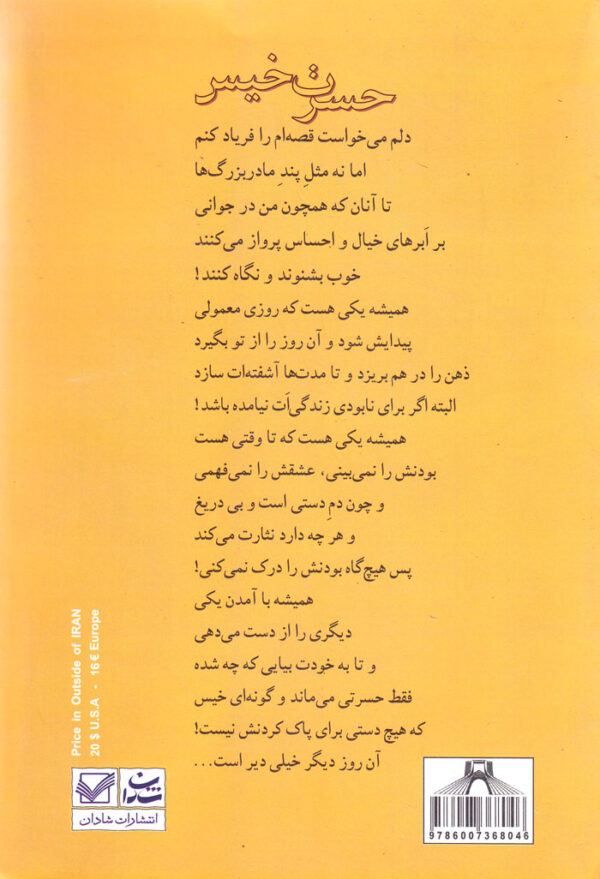 حسرت خیس
دلم می‌خواست قصه‌ام را فریاد کنم
اما نه مثلِ پندِ مادربزرگ‌ها
تا آنان که همچون من در جوانی
بر اَبرهای خیال و احساس پرواز می‌کنند
خوب بشنوند و نگاه کنند!
همیشه یکی هست که روزی معمولی
پیدایش شود و آن روز را از تو بگیرد
ذهن را در هم بریزد و تا مدت‌ها آشفته‌ات سازد
البته اگر برای نابودی زندگی‌اَت نیامده باشد!
همیشه یکی هست که تا وقتی هست
بودنش را نمی‌بینی، عشقش را نمی‌فهمی
و چون دمِ دستی است و بی دریغ
و هر چه دارد نثارت می‌کند
پس هیچ‌گاه بودنش را درک نمی‌کنی!
همیشه با آمدن یکی
دیگری را از دست می‌دهی
و تا به خودت بیایی که چه شده
فقط حسرتی می‌ماند و گونه‌ای خیس
که هیچ دستی برای پاک کردنش نیست!
آن روز دیگر خیلی دیر است...
Price in Outside of IRAN
20 $ U.S.A - 16 € Europe
شادان
انتشارات شادان
9786007368046